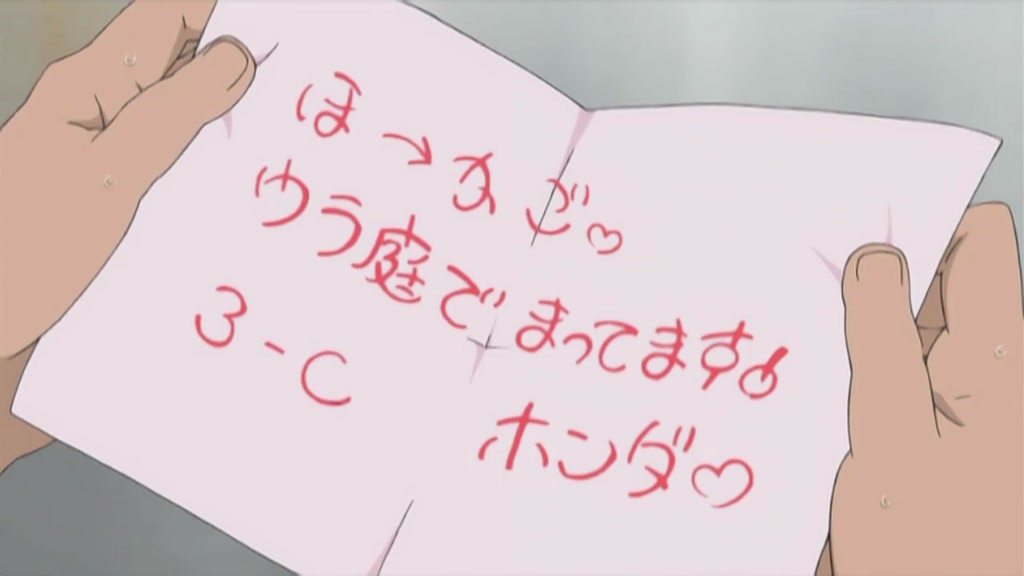 ほーかご♡
ウラ庭でまってます!
3-C
ホンダ♡